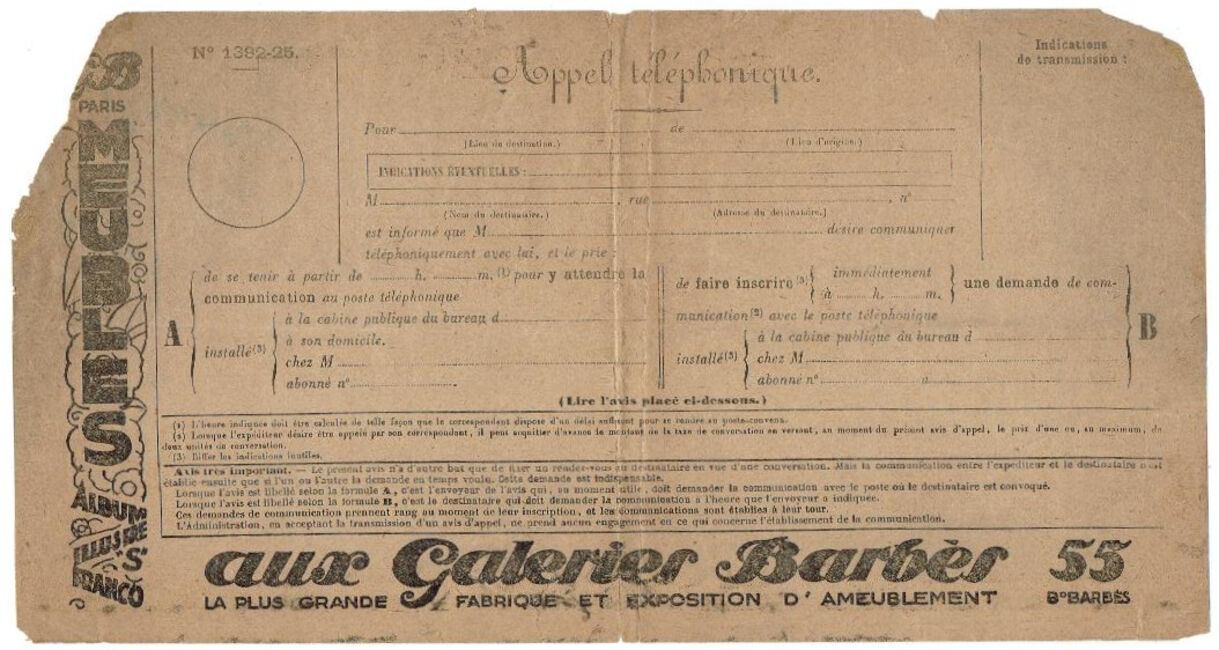 N° 1392-25.
Appel téléphonique.
Indications
de transmission :
Pour de
(Lieu de destination.) (Lieu d'origine.)
INDICATIONS ÉVENTUELLES :
M , rue , n°
(Nom du destinataire.) (Adresse du destinataire.)
est informé que M désire communiquer
téléphoniquement avec lui, et le prie :
A
de se tenir à partir de h. m. (1) pour y attendre la
communication au poste téléphonique
installé (3)
à la cabine publique du bureau d
à son domicile.
chez M
abonné n° .
de faire inscrire (3) immédiatement une demande de com-
à h. m.
munication (2) avec le poste téléphonique
installé (3)
à la cabine publique du bureau d
chez M
abonné n° a
B
(Lire l'avis placé ci-dessous.)
(1) L'heure indiquée doit être calculée de telle façon que le correspondant dispose d'un délai suffisant pour se rendre au poste convenu.
(2) Lorsque l'expéditeur désire être appelé par son correspondant, il peut acquitter d'avance le montant de la taxe de conversation en versant, au moment du présent avis d'appel, le prix d'une ou, au maximum, de
deux unités de conversation.
(3) Biffer les indications inutiles.
Avis très important. — Le présent avis n'a d'autre but que de fixer un rendez-vous au destinataire en vue d'une conversation. Mais la communication entre l'expéditeur et le destinataire n'est
établie ensuite que si l'un ou l'autre la demande en temps voulu. Cette demande est indispensable.
Lorsque l'avis est libellé selon la formule A, c'est l'envoyeur de l'avis qui, au moment utile, doit demander la communication avec le poste où le destinataire est convoqué.
Lorsque l'avis est libellé selon la formule B, c'est le destinataire qui doit demander la communication à l'heure que l'envoyeur a indiquée.
Ces demandes de communication prennent rang au moment de leur inscription, et les communications sont établies à leur tour.
L'Administration, en acceptant la transmission d'un avis d'appel, ne prend aucun engagement en ce qui concerne l'établissement de la communication.
GB
PARIS
MEUBLES
ALBUM
ILLUSTRÉ
S^r
FRANCO
aux Galeries Barbès 55
LA PLUS GRANDE FABRIQUE ET EXPOSITION D'AMEUBLEMENT B^D BARBÈS